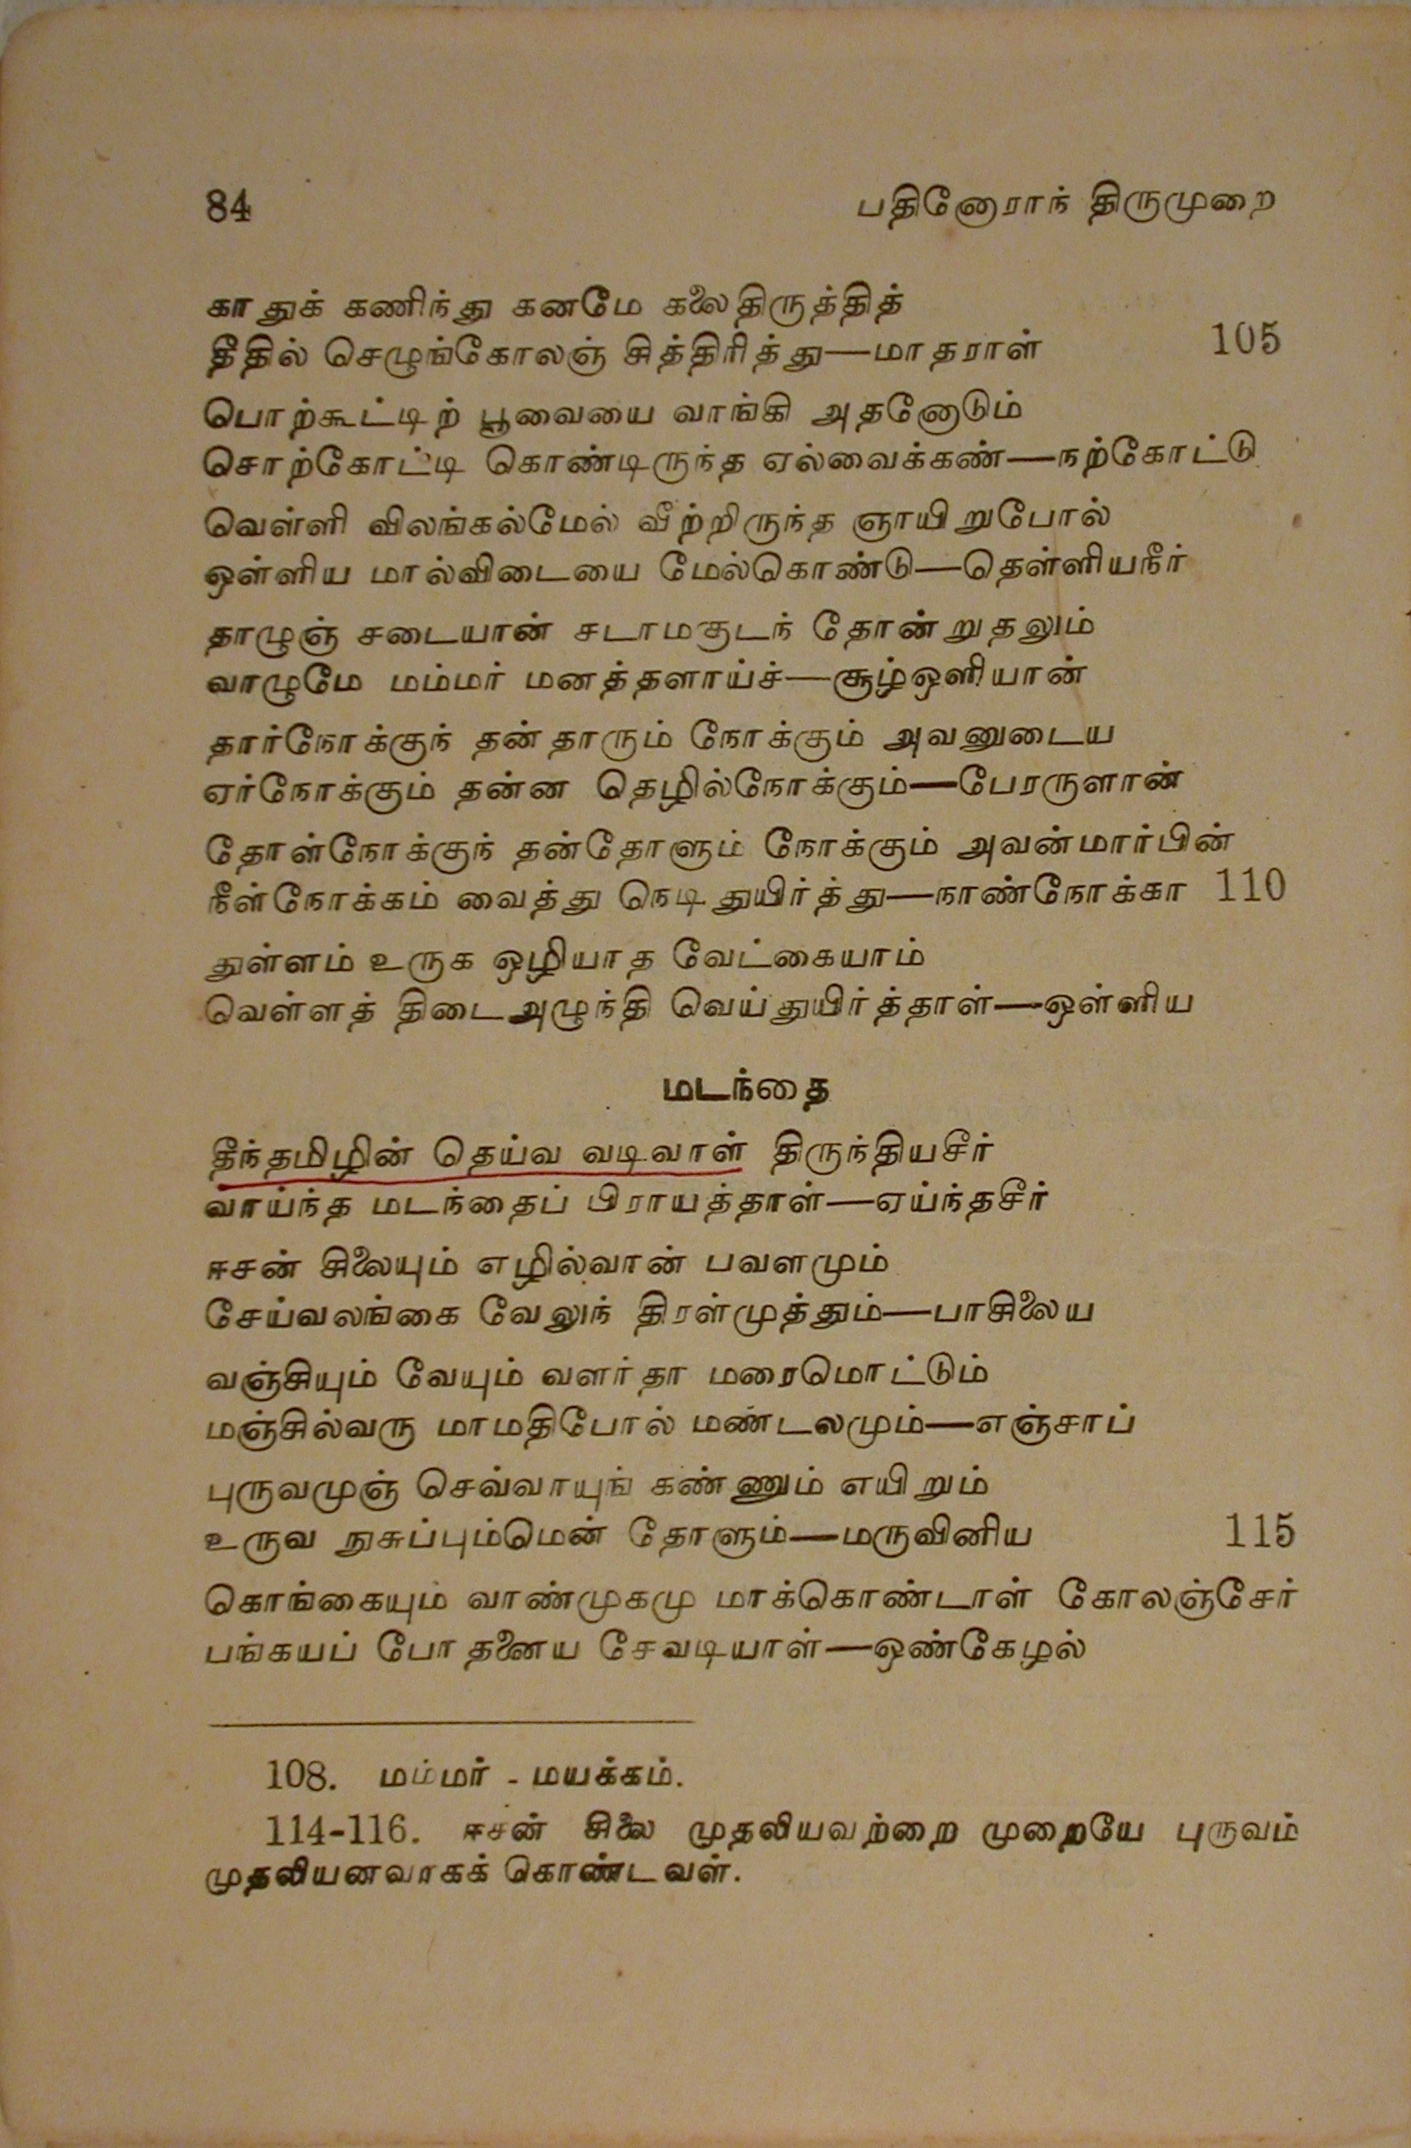 84
பதினோராந் திருமுறை
காதுக் கணிந்து கனமே கலைதிருத்தித்
தீதில் செழுங்கோலஞ் சித்திரித்து—மாதராள் 105
பொற்கூட்டிற் பூவையை வாங்கி அதனோடும்
சொற்கோட்டி கொண்டிருந்த ஏல்வைக்கண்—நற்கோட்டு
வெள்ளி விலங்கல்மேல் வீற்றிருந்த ஞாயிறுபோல்
ஒள்ளிய மால்விடையை மேல்கொண்டு—தெள்ளியநீர்
தாழுஞ் சடையான் சடாமகுடந் தோன்றுதலும்
வாழுமே மம்மர் மனத்தளாய்ச்—சூழ்ஒளியான்
தார்நோக்குந் தன்தாரும் நோக்கும் அவனுடைய
ஏர்நோக்கும் தன்ன தெழில்நோக்கும்—பேரருளான்
தோள்நோக்குந் தன்தோளும் நோக்கும் அவன்மார்பின்
நீள்நோக்கம் வைத்து நெடிதுயிர்த்து—நாண்நோக்கா 110
துள்ளம் உருக ஒழியாத வேட்கையாம்
வெள்ளத் திடைஅழுந்தி வெய்துயிர்த்தாள்—ஒள்ளிய
மடந்தை
தீந்தமிழின் தெய்வ வடிவாள் திருந்தியசீர்
வாய்ந்த மடந்தைப் பிராயத்தாள்—ஏய்ந்தசீர்
ஈசன் சிலையும் எழில்வான் பவளமும்
சேய்வலங்கை வேலுந் திரள்முத்தும்—பாசிலைய
வஞ்சியும் வேயும் வளர்தா மரைமொட்டும்
மஞ்சில்வரு மாமதிபோல் மண்டலமும்—எஞ்சாப்
புருவமுஞ் செவ்வாயுங் கண்ணும் எயிறும்
உருவ நுசுப்பும்மென் தோளும்—மருவினிய 115
கொங்கையும் வாண்முகமு மாக்கொண்டாள் கோலஞ்சேர்
பங்கயப் போதனைய சேவடியாள்—ஒண்கேழல்
108. மம்மர் - மயக்கம்.
114-116. ஈசன் சிலை முதலியவற்றை முறையே புருவம்
முதலியனவாகக் கொண்டவள்.